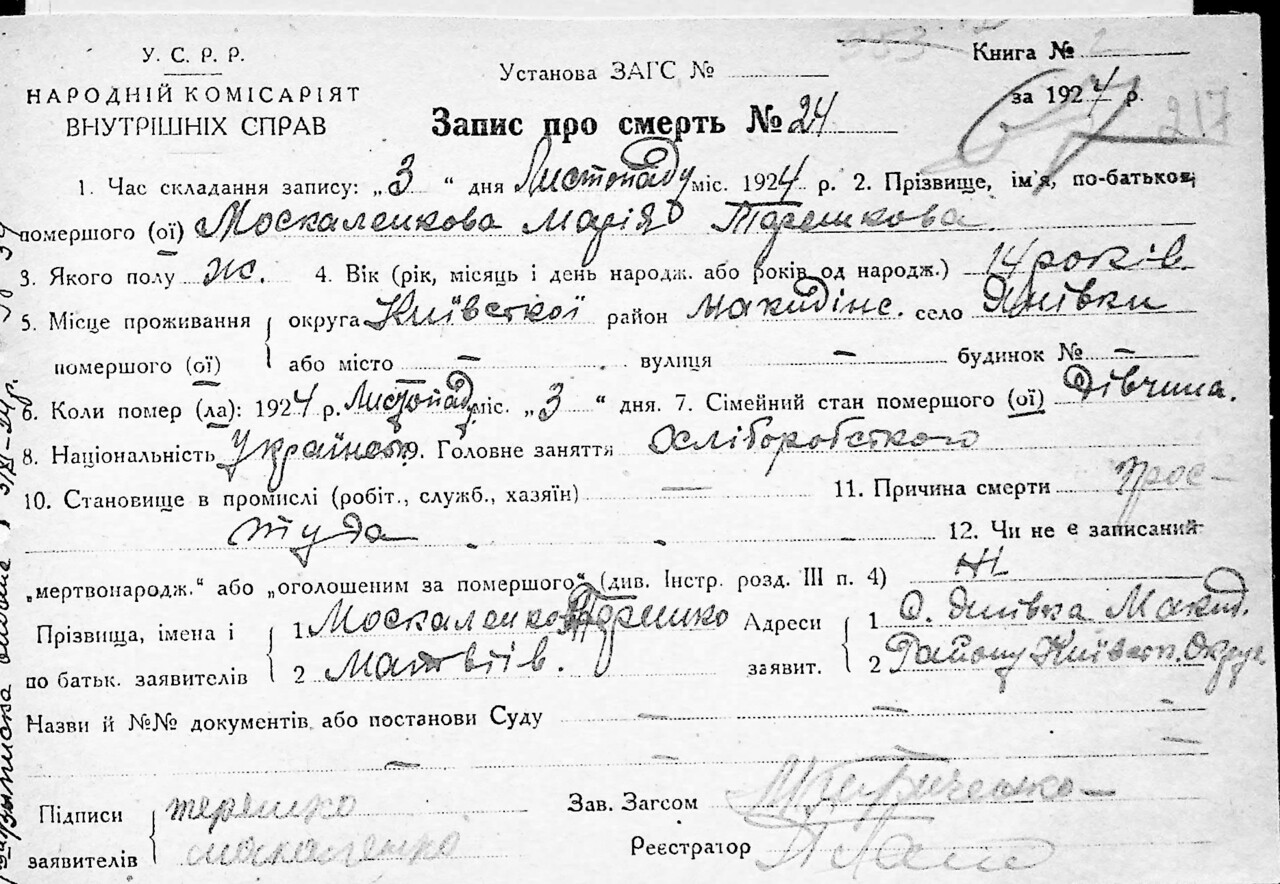 У. С. Р. Р.
НАРОДНІЙ КОМІСАРІЯТ
ВНУТРІШНІХ СПРАВ
Установа ЗАГС №
353
Книга № 2
за 1924 р.
217
Запис про смерть № 24
1. Час складання запису: „ 3 “ дня Листопаду міс. 1924 р. 2. Прізвище, ім'я, по-батькові
помершого (ої) Москаленкова Марія Терешкова
3. Якого полу ж. 4. Вік (рік, місяць і день народж. або років од народж.) 14 років.
5. Місце проживання помершого (ої) округа Київсткої район Макидінс. село Янівки
або місто – вулиця – будинок № –
6. Коли помер (ла): 1924 р. Листопаду міс. „ 3 “ дня. 7. Сімейний стан помершого (ої) Дівчина.
8. Національність 9. Головне заняття Хліборобсткого
10. Становище в промислі (робіт., служб., хазяїн) — 11. Причина смерти прос-
туда - - 12. Чи не є записаний
„мертвонародж.“ або „оголошеним за помершого“ (див. Інстр. розд. III п. 4) Ні
Прізвища, імена і по батьк. заявителів 1 Москаленко Терешко Адреси заявит. 1 С. Янівка Макид.
2 Матвіїв. 2 Району Київст. Округ.
Назви й №№ документів або постанови Суду — — -
— — —
Підписи заявителів терешко
москаленко
Зав. Загсом
Реєстратор